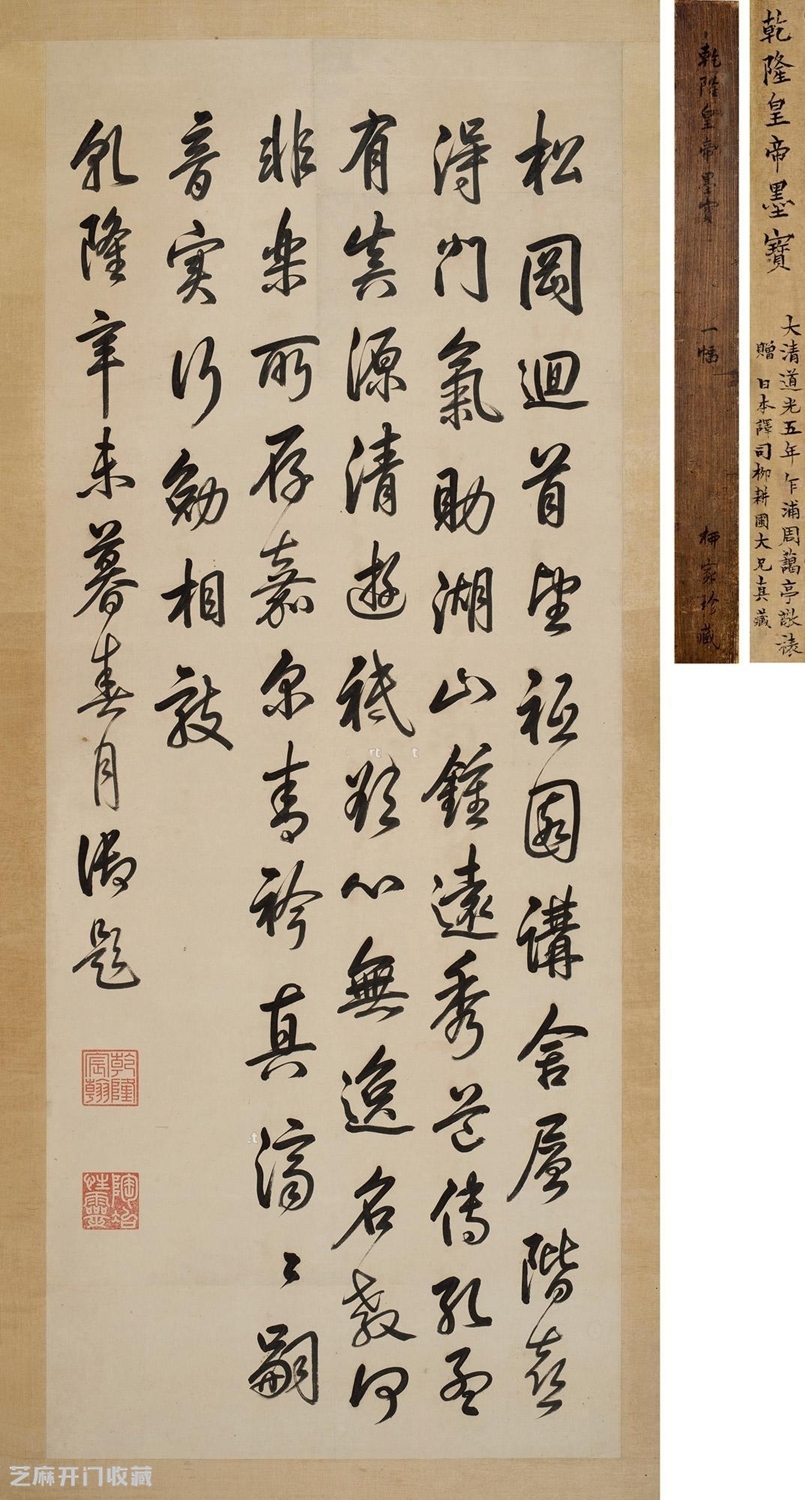 松岡迴首望祇園講舍層階喜
得門氣助湖山鍾遠秀道傳孔孟
有真源清遊祗欲心無逸名教何
非樂所存嘉爾青衿真濟〻嗣
音實行勉相敦
乾隆辛未暮春月御題
乾隆宸翰
陶冶性靈
乾隆皇帝墨寶
一幅
柳家珍藏
乾隆皇帝墨寶
大清道光五年乍浦周藹亭敬裱
贈日本譯司柳耕圃大兄真藏
芝麻开门收藏